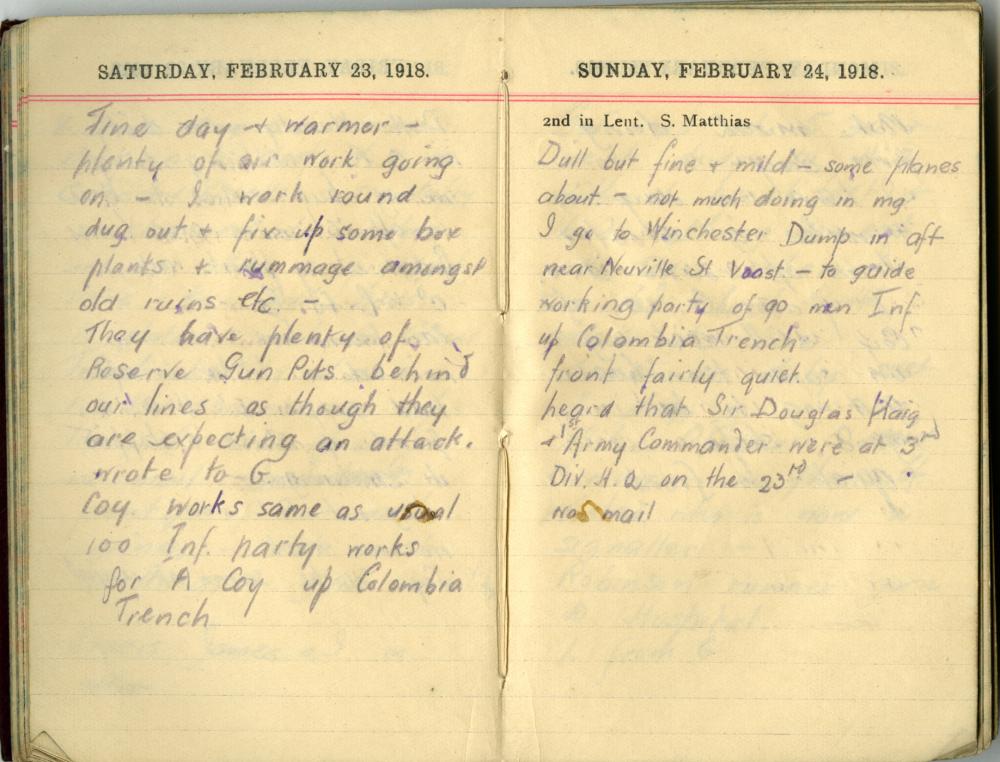 SATURDAY, FEBRUARY 23, 1918.
Fine day + warmer –
plenty of air work going
on. – I work round
dug out + fix up some box
plants + rummage amongst
old ruins etc. –
They have plenty of
Reserve Gun Pits behind
our lines as though they
are expecting an attack.
wrote to G.
Coy works same as usual
100 Inf. party works
for A Coy up Colombia
Trench
SUNDAY, FEBRUARY 24, 1918.
2nd in Lent. S. Matthias
Dull but fine + mild – some planes
about – not much doing in mg
I go to Winchester Dump in aft
near Neuville St Vaast – to guide
working party of 90 men Inf
up Colombia Trench
front fairly quiet.
heard that Sir Douglas Haig
+ 1st Army Commander were at 3rd
Div. H.Q on the 23rd –
no mail